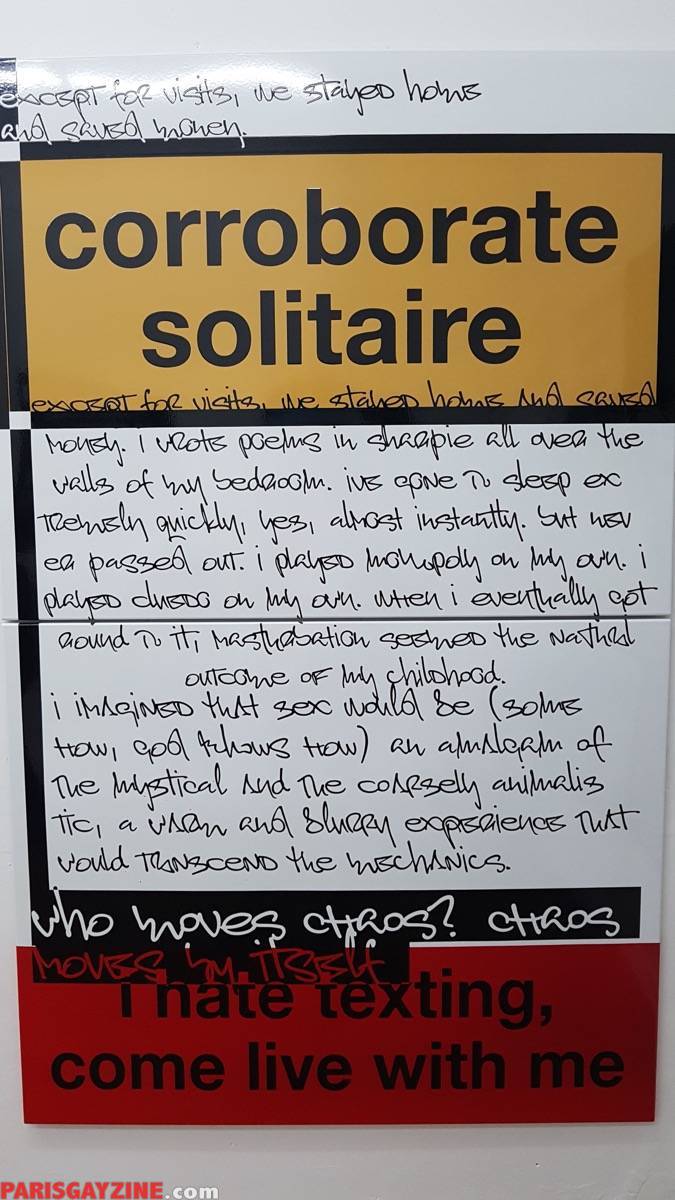 except for visits, we stayed home
and saved money.
corroborate
solitaire
except for visits, we stayed home and saved
money. i wrote poems in sharpie all over the
walls of my bedroom. ive gone to sleep ex
tremely quickly, yes, almost instantly. but nev
er passed out. i played monopoly on my own. i
played cluedo on my own. when i eventually got
round to it, masturbation seemed the natural
outcome of my childhood.
i imagined that sex would be (some
how, god knows how) an amalgam of
the mystical and the coarsely animalis
tic, a warm and blurry experience that
would transcend the mechanics.
who moves chaos? chaos
moves by itself
i hate texting,
come live with me
PARISGAYZINE.com